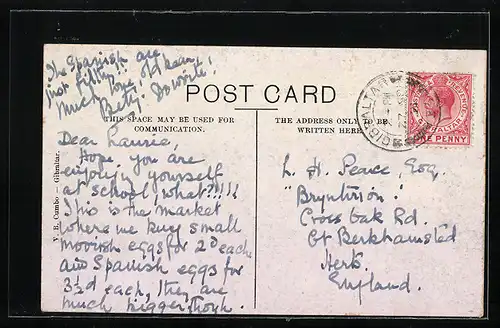 The Spanish are
just filthy!!
Much love, old bean
Betty. Do write!
POST CARD
THIS SPACE MAY BE USED FOR
COMMUNICATION.
THE ADDRESS ONLY TO BE
WRITTEN HERE.
GIBRALTAR
GIBRALTAR
ONE PENNY
V. B. Cumbo — Gibraltar.
Dear Laurie,
Hope you are
enjoying yourself
at school, what?!!!!
This is the market
where we buy small
moorish eggs for 2d each
and Spanish eggs for
3½d each, they are
much bigger, though.
L. H. Peace, Esq
"Bryntirion"
Cross Oak Rd.
Gt Berkhamsted
Herts.
England.